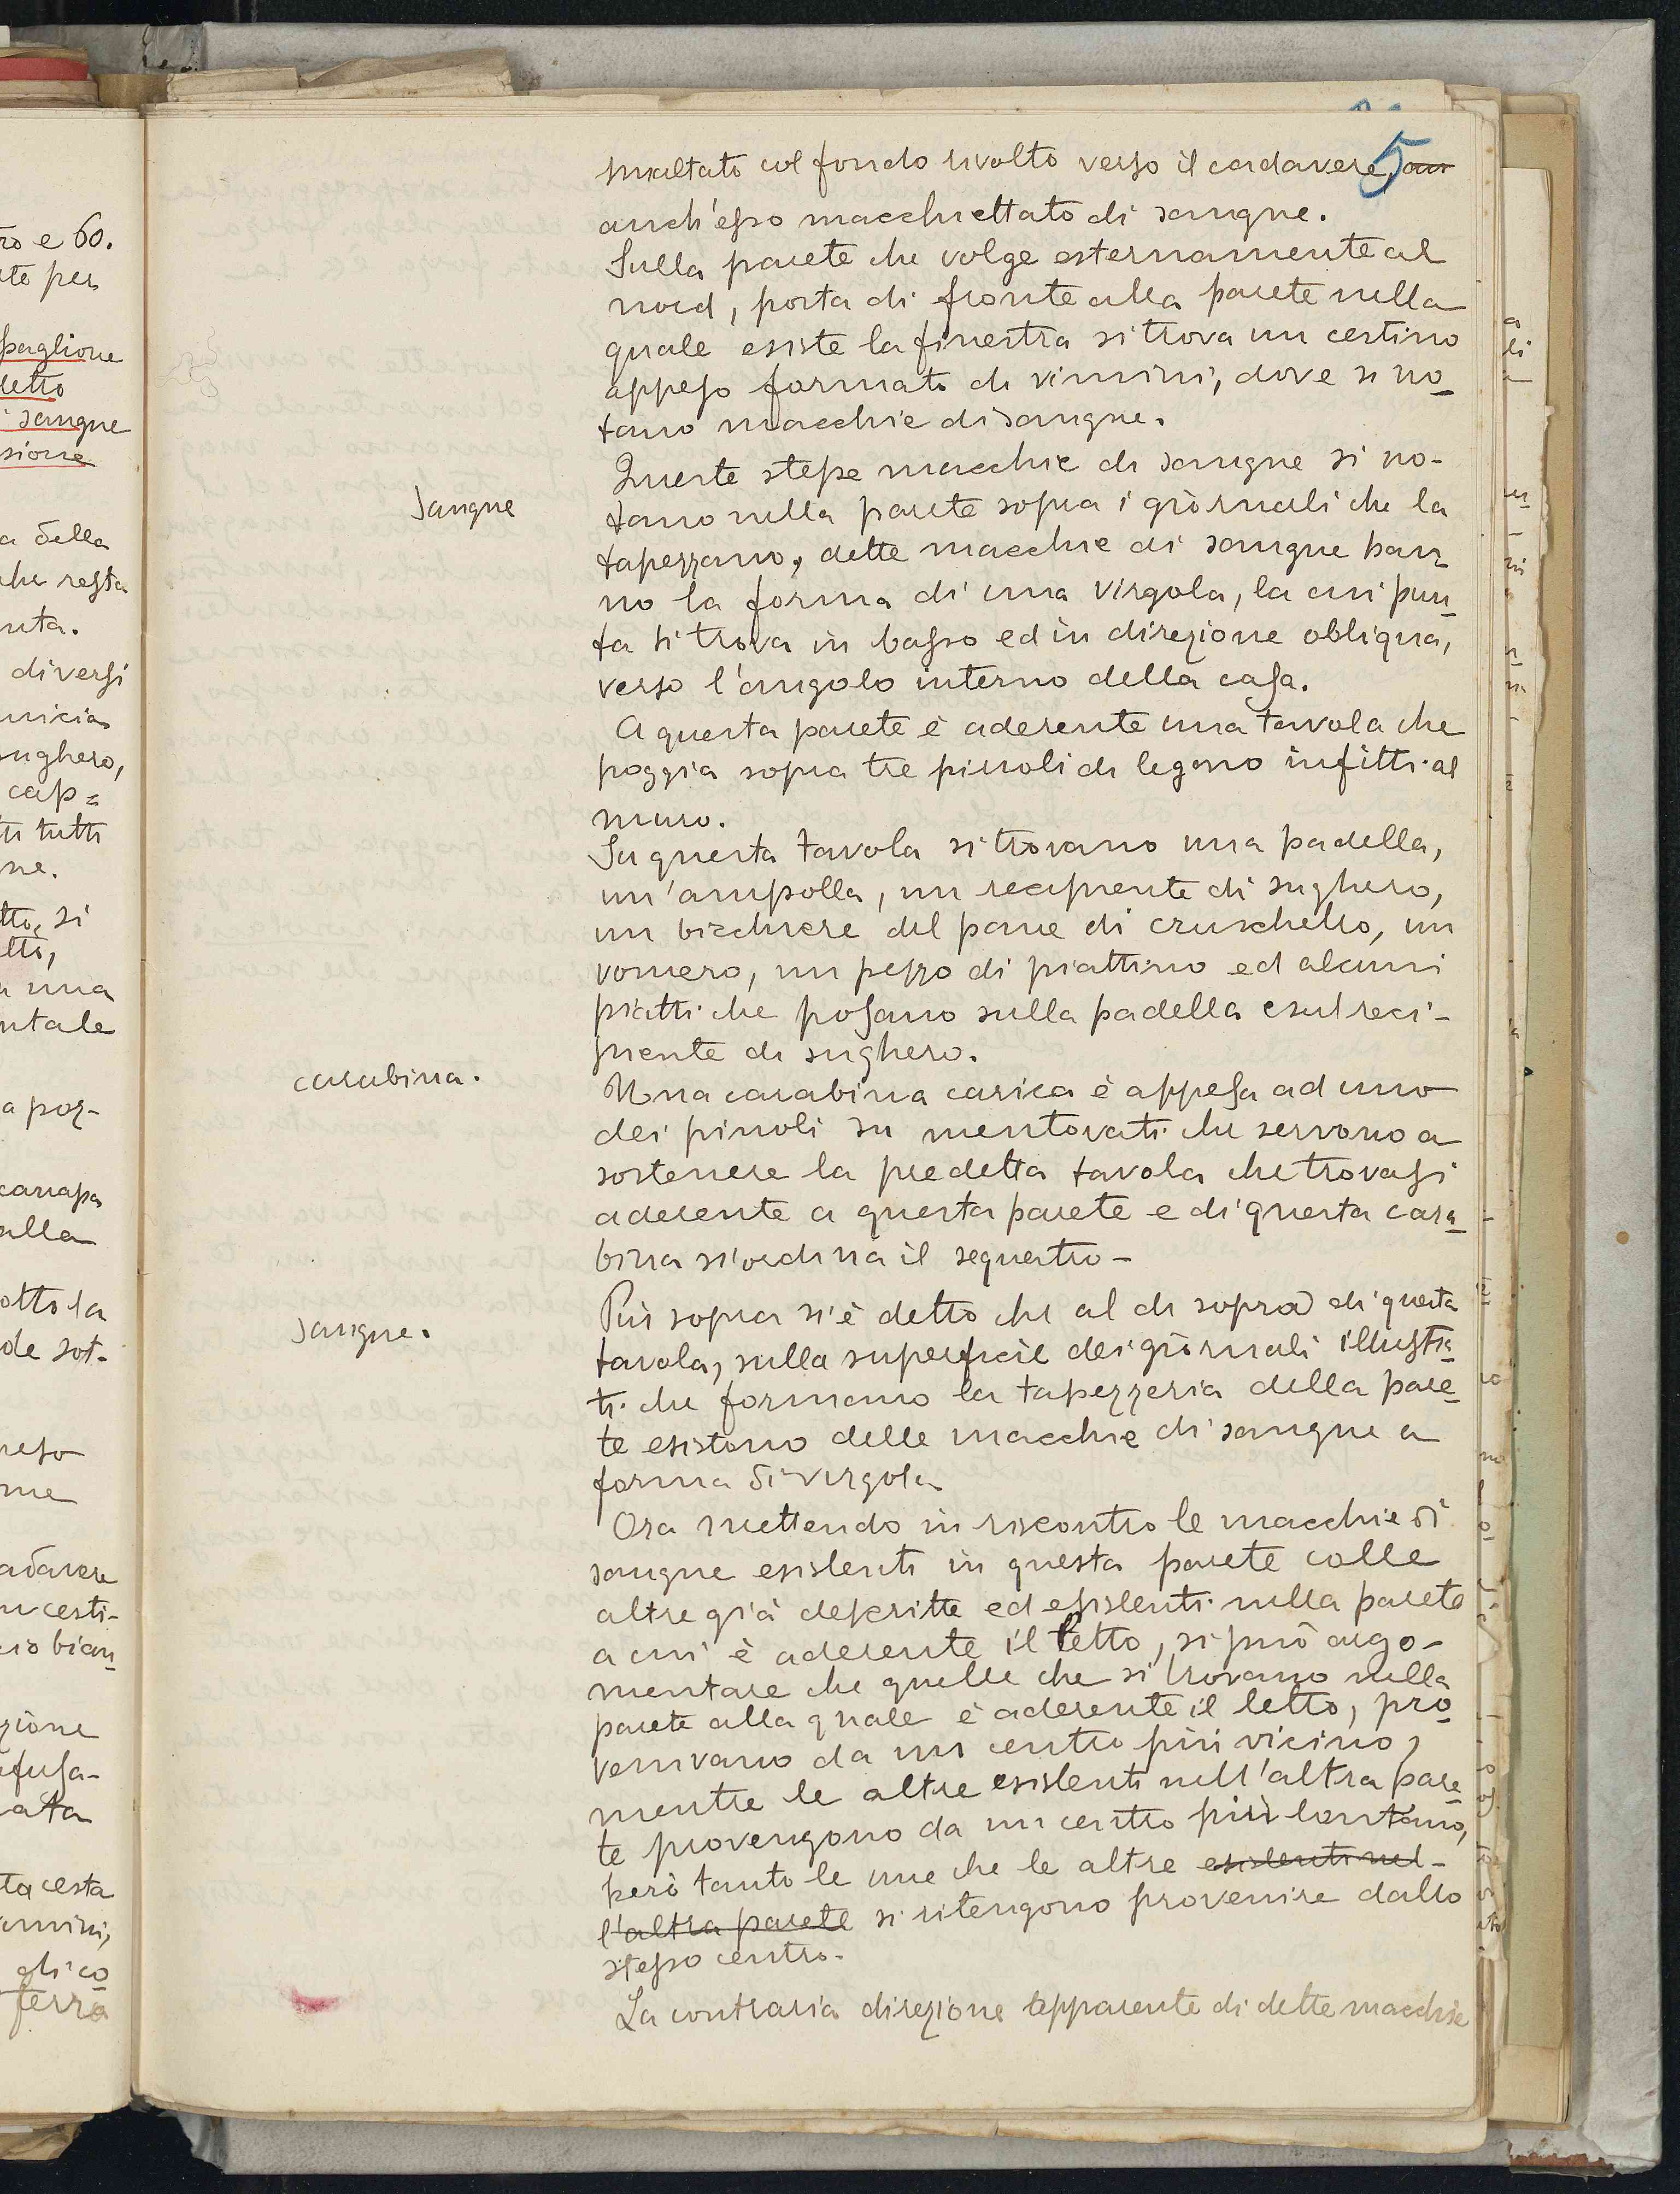 5
smaltato col fondo rivolto verso il cadavere, an
anch'esso macchiettato di sangue.
Sulla parete che volge esternamente al
nord, posta di fronte alla parete nella
quale esiste la finestra si trova un cestino
appeso formato di vimini, dove si no-
tano macchie di sangue.
Sangue
Queste stesse macchie di sangue si no-
tano nella parete sopra i giornali che la
tapezzano, dette macchie di sangue han-
no la forma di una virgola, la cui pun-
ta si trova in basso ed in direzione obliqua,
verso l'angolo interno della casa.
A questa parete è aderente una tavola che
poggia sopra tre piuoli di legno infitti al
muro.
Su questa tavola si trovano una padella,
un'ampolla, un recipiente di sughero,
un bicchiere del pane di cruschello, un
vomero, un pezzo di piattino ed alcuni
piatti che posano sulla padella e sul reci-
piente di sughero.
carabina.
Una carabina carica è appesa ad uno
dei piuoli su mentovati che servono a
sostenere la predetta tavola che trovasi
aderente a questa parete e di questa cara-
bina si ordina il sequestro-
Sangue.
Più sopra si è detto che al di sopra di questa
tavola, sulla superficie dei giornali illustra-
ti che formano la tapezzeria della pare-
te esistono delle macchie di sangue a
forma di virgola
Ora mettendo in riscontro le macchie di
sangue esistenti in questa parete colle
altre già descritte ed esistenti nella parete
a cui è aderente il letto, si può argo-
mentare che quelle che si trovano nella
parete alla quale è aderente il letto, pro-
venivano da un centro più vicino,
mentre le altre esistenti nell'altra pare-
te provengono da un centro più lontano,
però tanto le une che le altre esistenti nel-
l'altra parete si ritengono provenire dallo
stesso centro.
La contraria direzione apparente di dette macchie
tro e 60.
paglione
letto
sangue
sione
a della
che resta
nuta.
diversi
sughero,
cap=
tutti
ne.
si
etto,
una
ntale
a poz-
canapa
alla
otto la
de sot-
me
adavere
n cesti-
cio bian-
zione
ata
ta cesta
gli co
terra